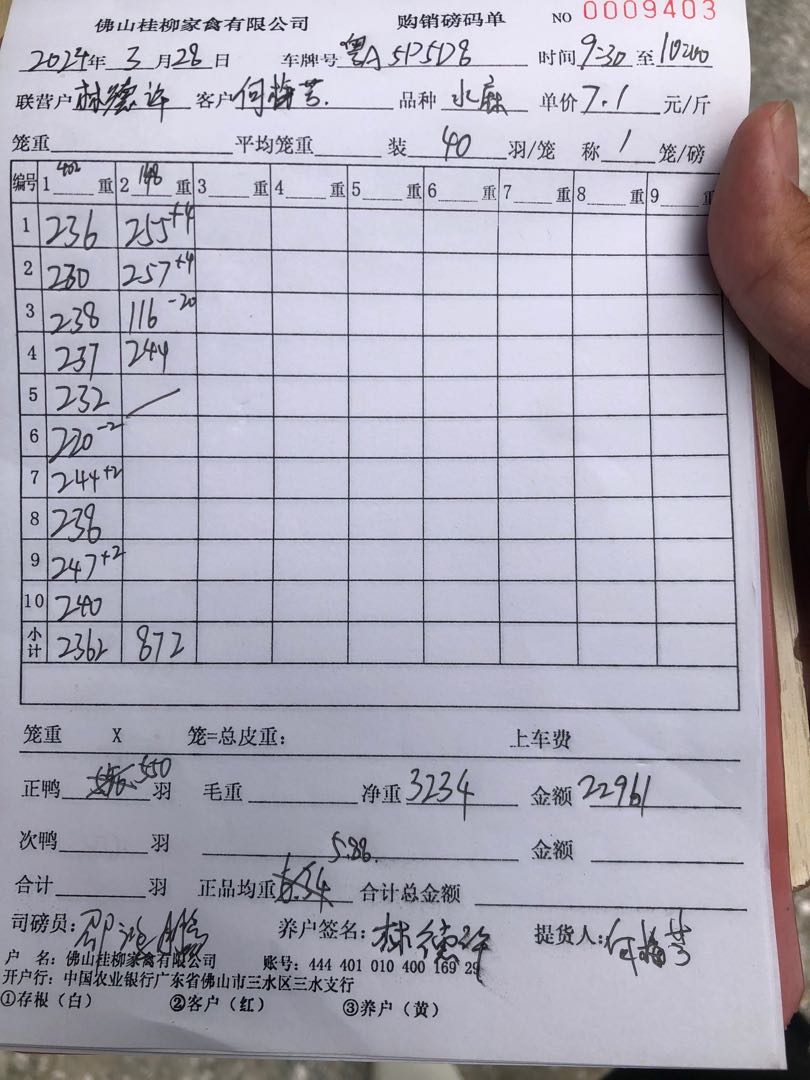 佛山桂柳家禽有限公司 购销磅码单 NO 0009403
2024年3月28日 车牌号 粤A5P5D8 时间 9:30 至 10:00
联营户 林德许 客户 何梅芳. 品种 水麻 单价 7.1 元/斤
笼重 平均笼重 装 40 羽/笼 称 1 笼/磅
编号 1 402 重 2 148 重 3 重 4 重 5 重 6 重 7 重 8 重 9
1 236 255+4
2 230 257+4
3 238 116-20
4 237 244
5 232
6 220-2
7 244+2
8 238
9 247+2
10 240
小计 2362 872
笼重 X 笼=总皮重: 上车费
正鸭 550 羽 毛重 净重 3234 金额 22961
次鸭 羽 5.88. 金额
合计 羽 正品均重 6.34 合计总金额
司磅员: 养户签名: 林德许 提货人: 何梅芳
户 名: 佛山桂柳家禽有限公司 账号: 444 401 010 400 169 29
开户行: 中国农业银行广东省佛山市三水区三水支行
①存根(白) ②客户(红) ③养户(黄)